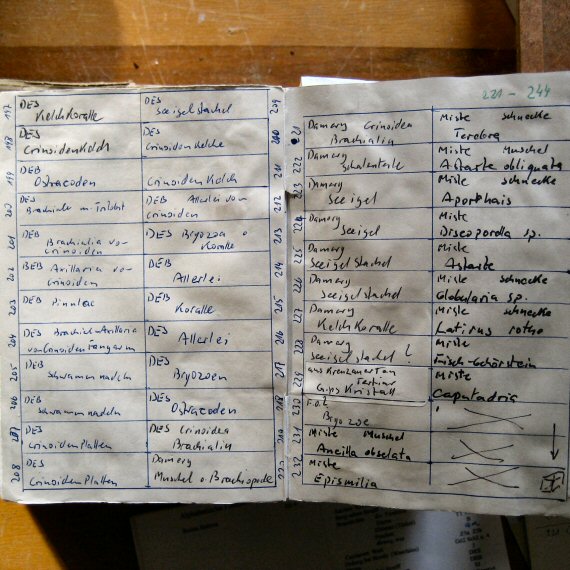 197
DES
Kelchkoralle
DES
Seeigelstachel
209
198
DES
Crinoidenkelch
DES
Crinoidenkelche
210
199
DEB
Ostracoden
Crinoidenkelch
211
200
DES
DEB Allerlei von
Crinoiden
212
201
DEB
Brachialia von
Crinoiden
DES Bryozoa o
Koralle
213
202
DEB Axillaria von
Crinoiden
DEB
Allerlei
214
203
DEB Pinnulae
DEB
Koralle
215
204
DES
von Crinoidenfangarm
DES
Allerlei
216
205
DES
Schwammnadeln
DES
Bryozoen
217
206
DES
Schwammnadeln
DES
Ostracoden
218
207
DES
Crinoiden Platten
DES Crinoidea
Brachialia
219
208
DES
Crinoiden Platten
Damery
Muschel o Brachiopode
220
221 - 244
221
Damery Crinoidea
Brachialia
Miste schnecke
Terebra
222
Damery
Schalenteile
Miste Muschel
Astarte obliquata
223
Damery
Seeigel
Miste schnecke
Aporrhais
224
Damery
Seeigel
Miste
Discoporella sp.
225
Damery
Seeigelstachel
Miste
Astarte
226
Damery
Seeigelstachel
Miste schnecke
Globularia sp.
227
Damery
KelchKoralle
Miste schnecke
Latirus
228
Damery
Seeigelstachel ?
Miste
Fisch-Gehörstein
229
Tertiär
Gips Kristall
Miste
230
Bryozoe
231
Miste Muschel
Ancilla obsoleta
232
Miste
Epismilia